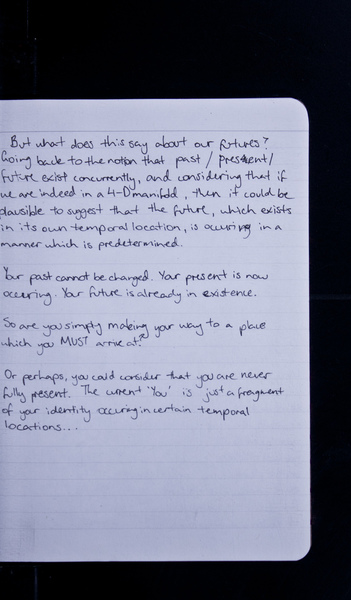 But what does this say about our futures?
Going back to the notion that past / present /
future exist concurrently, and considering that if
we are indeed in a 4-D manifold, then it could be
plausible to suggest that the future, which exists
in its own temporal location, is occuring in a
manner which is predetermined.
Your past cannot be changed. Your present is now
occuring. Your future is already in existence.
So are you simply making your way to a place
which you MUST arrive at?
Or perhaps, you could consider that you are never
fully present. The current 'You' is just a fragment
of your identity occuring in certain temporal
locations...